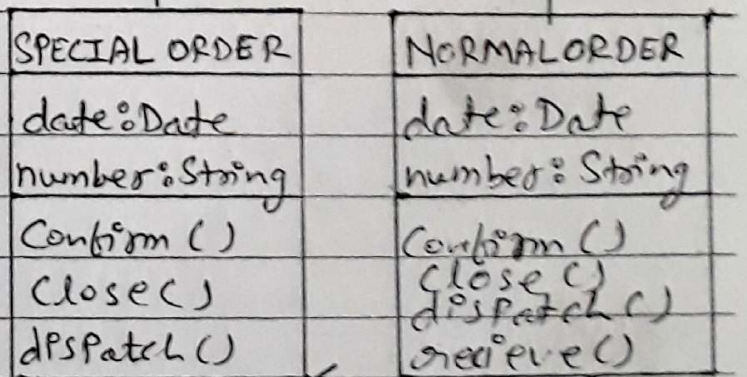 SPECIAL ORDER
date:Date
number:String
Confirm ()
Close()
dispatch()
NORMAL ORDER
date: Date
number: String
Confirm ()
Close ()
dispatch ()
recieve()